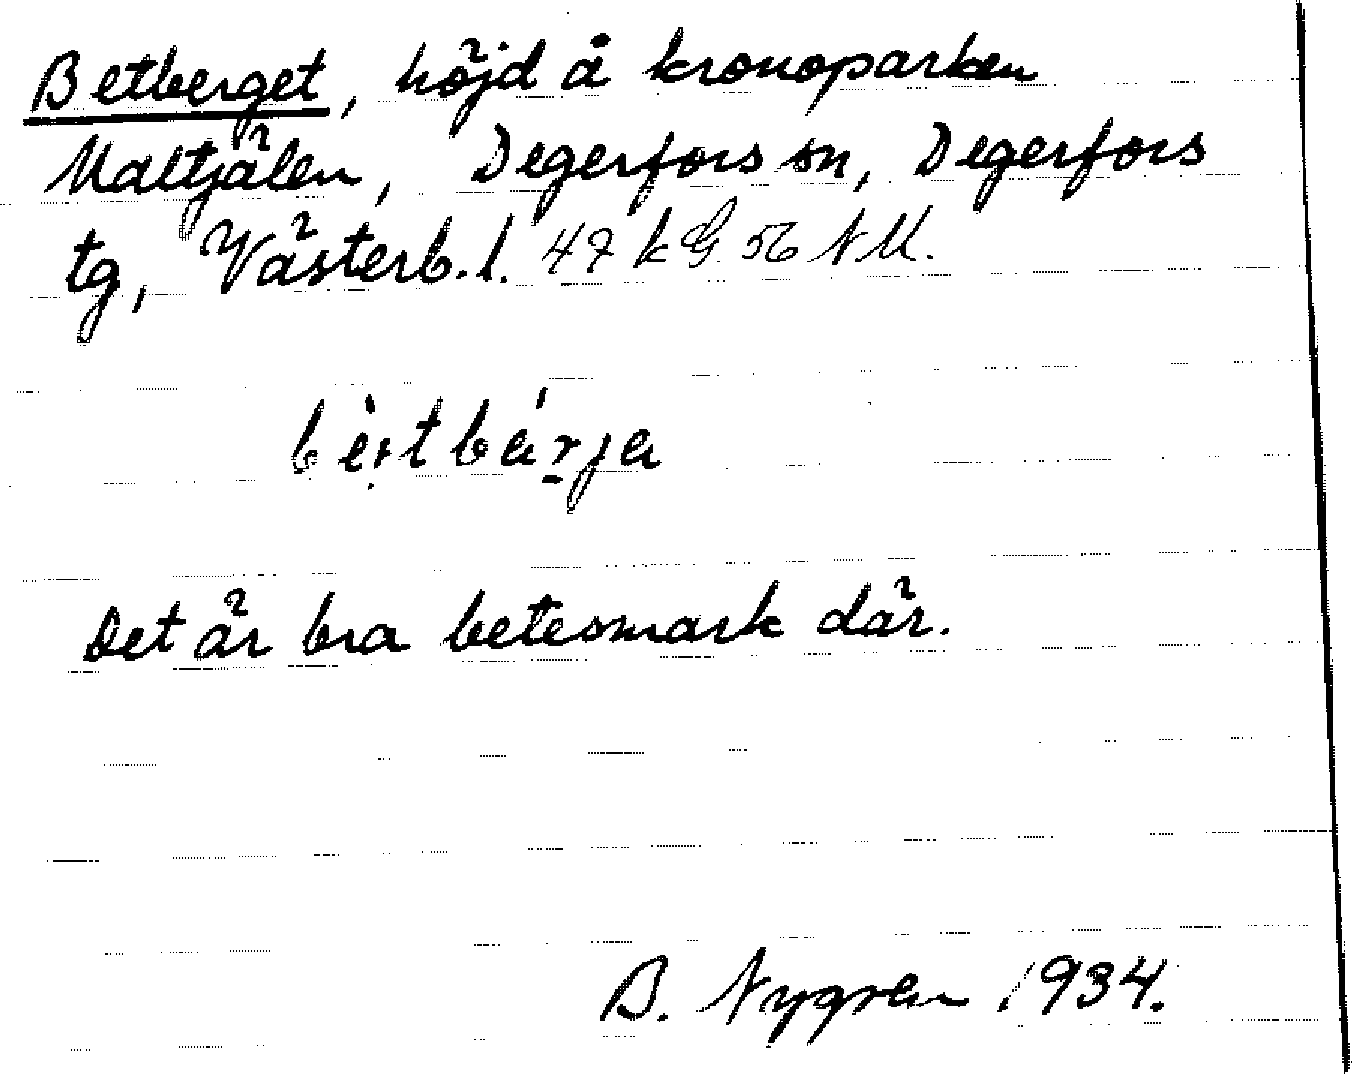 Betberget, höjd å kronoparken
Maltjälen, Degerfors sn, Degerfors
tg, Västerb. l. 47 k G 56 NM.
Det är bra betesmark där.
B. Nygren 1934.